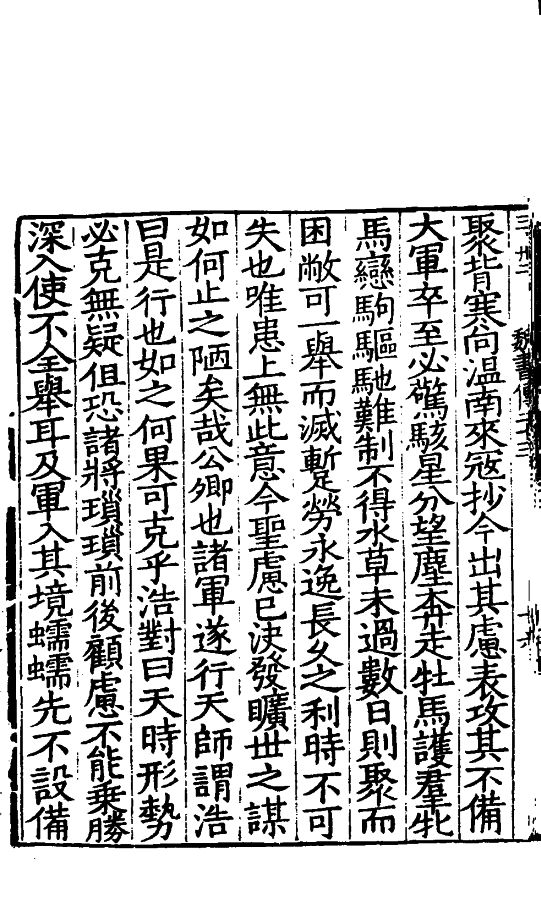 魏書傳二十三
聚背寒向溫南來寇抄今出其慮表攻其不備
大軍卒至必驚駭星分望塵奔走牡馬護羣牝
馬戀駒驅馳難制不得水草未過數日則聚而
困敝可一舉而滅蹔勞永逸長久之利時不可
失也唯患上無此意今聖慮已決發曠世之謀
如何止之陋矣哉公卿也諸軍遂行天師謂浩
曰是行也如之何果可克乎浩對曰天時形勢
必克無疑但恐諸將瑣瑣前後顧慮不能乘勝
深入使不全舉耳及軍入其境蠕蠕先不設備